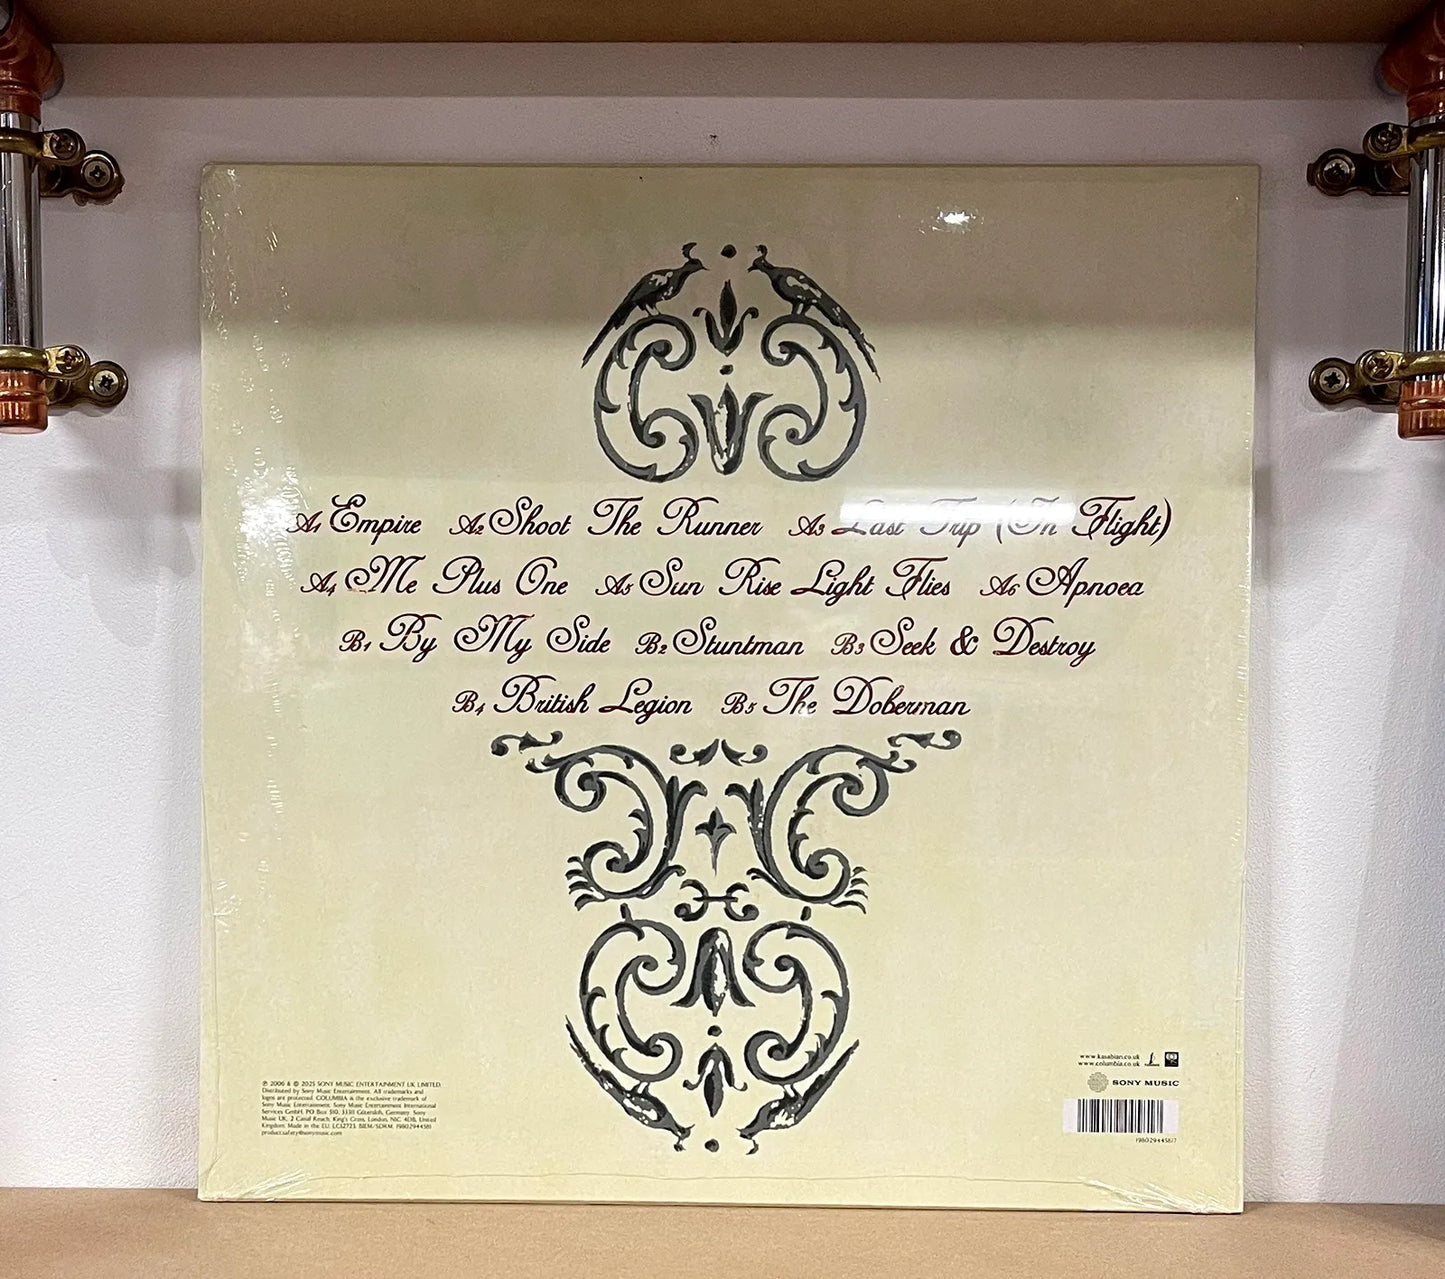 A1 Empire A2 Shoot The Runner A3 Last Trip (In Flight)
A4 Me Plus One A5 Sun Rise Light Flies A6 Apnoea
B1 By My Side B2 Stuntman B3 Seek & Destroy
B4 British Legion B5 The Doberman
www.kasabian.co.uk
www.columbia.co.uk
SONY MUSIC
℗ 2006 & © 2025 SONY MUSIC ENTERTAINMENT UK LIMITED.
Distributed by Sony Music Entertainment. All trademarks and
logos are protected. COLUMBIA is the exclusive trademark of
Sony Music Entertainment. Sony Music Entertainment International
Services GmbH, P.O. Box 510, 33311 Gütersloh, Germany. Sony
Music UK, 2 Canal Reach, King's Cross, London, N1C 4DB, United
Kingdom. Made in the EU. LC12723. BIEM/SDRM. 19802944581
product.safety@sonymusic.com